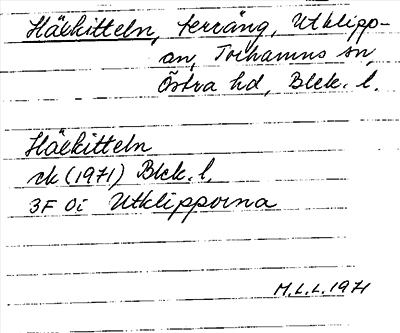 Hälkitteln, terräng, Utklipp-
an, Torhamns sn,
Östra hd, Blek. l.
Hälkitteln
ek (1971) Blek. l.
3F 0i Utklipporna
M.L.L. 1971